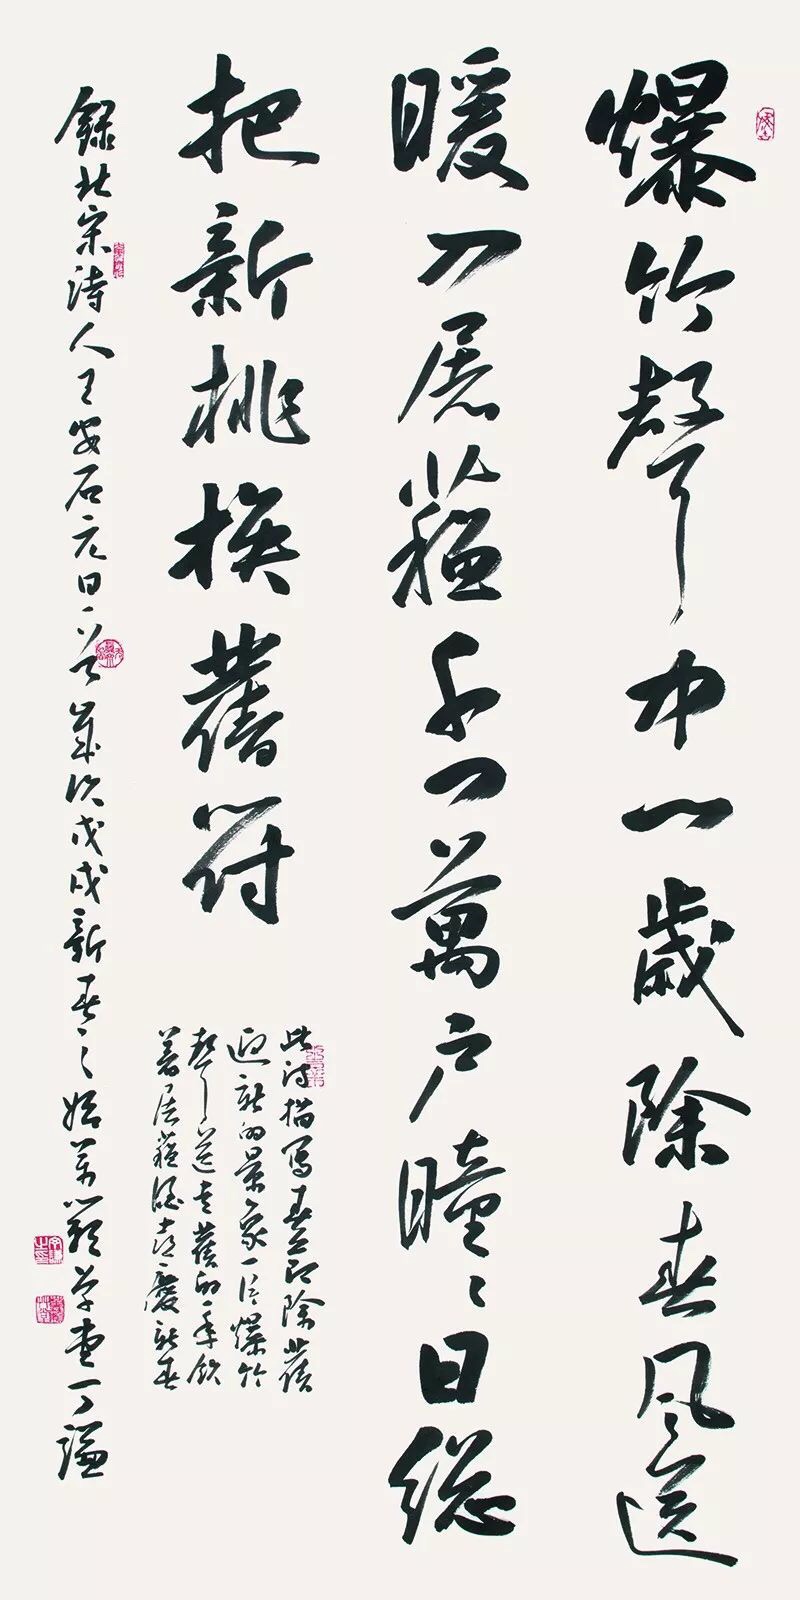 爆竹聲中一歲除春風送
暖入屠蘇千門萬戶曈〻日總
把新桃換舊符
此詩描寫春節除舊
迎新的景象一片爆竹
聲送走舊的一年飲
着屠蘇酒慶新春
錄北宋詩人王安石元日一首歲次戊戌新春之始草堂丁謙